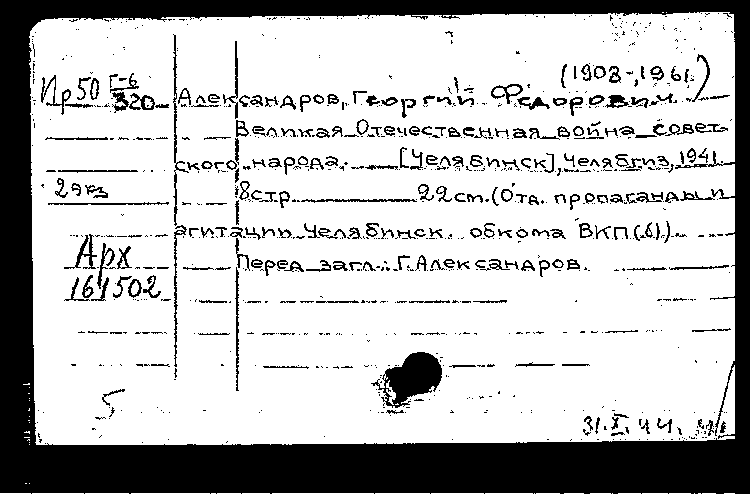 (1908-1961)
Ир50 Г-6/320 Александров, Георгий Федорович
Великая Отечественная война совет-
ского народа. [Челябинск], Челябгиз, 1941.
2 экз 8стр. 22см. (Отд. пропаганды и
агитации Челябинск. обкома ВКП(б).)
Арх Перед загл.: Г.Александров.
161502
5
31.X.44.